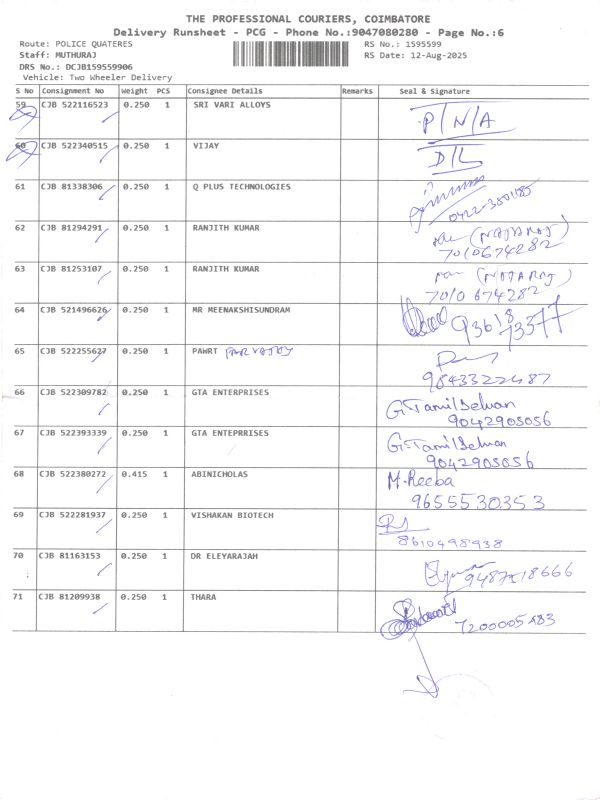 THE PROFESSIONAL COURIERS, COIMBATORE
Delivery Runsheet - PCG - Phone No.:9047080280 - Page No.:6
Route: POLICE QUATERES RS No.: 1595599
Staff: MUTHURAJ RS Date: 12-Aug-2025
DRS No.: DCJB159559906
Vehicle: Two Wheeler Delivery
S No Consignment No Weight PCS Consignee Details Remarks Seal & Signature
59 CJB 522116523 0.250 1 SRI VARI ALLOYS P/N/A
60 CJB 522340515 0.250 1 VIJAY D/L
61 CJB 81338306 0.250 1 Q PLUS TECHNOLOGIES
62 CJB 81294291 0.250 1 RANJITH KUMAR (NATARAJ)
7010674282
63 CJB 81253107 0.250 1 RANJITH KUMAR (NATARAJ)
7010 674282
64 CJB 521496626 0.250 1 MR MEENAKSHISUNDRAM
65 CJB 522255627 0.250 1 PAWRT
9843322487
66 CJB 522309782 0.250 1 GTA ENTERPRISES G. Tamil Selvan
9042905056
67 CJB 522393339 0.250 1 GTA ENTEPRRISES G. Tamil Selvan
9042905056
68 CJB 522380272 0.415 1 ABINICHOLAS M. Reeba
9655530353
69 CJB 522281937 0.250 1 VISHAKAN BIOTECH
8610498938
70 CJB 81163153 0.250 1 DR ELEYARAJAH
71 CJB 81209938 0.250 1 THARA 7200005483